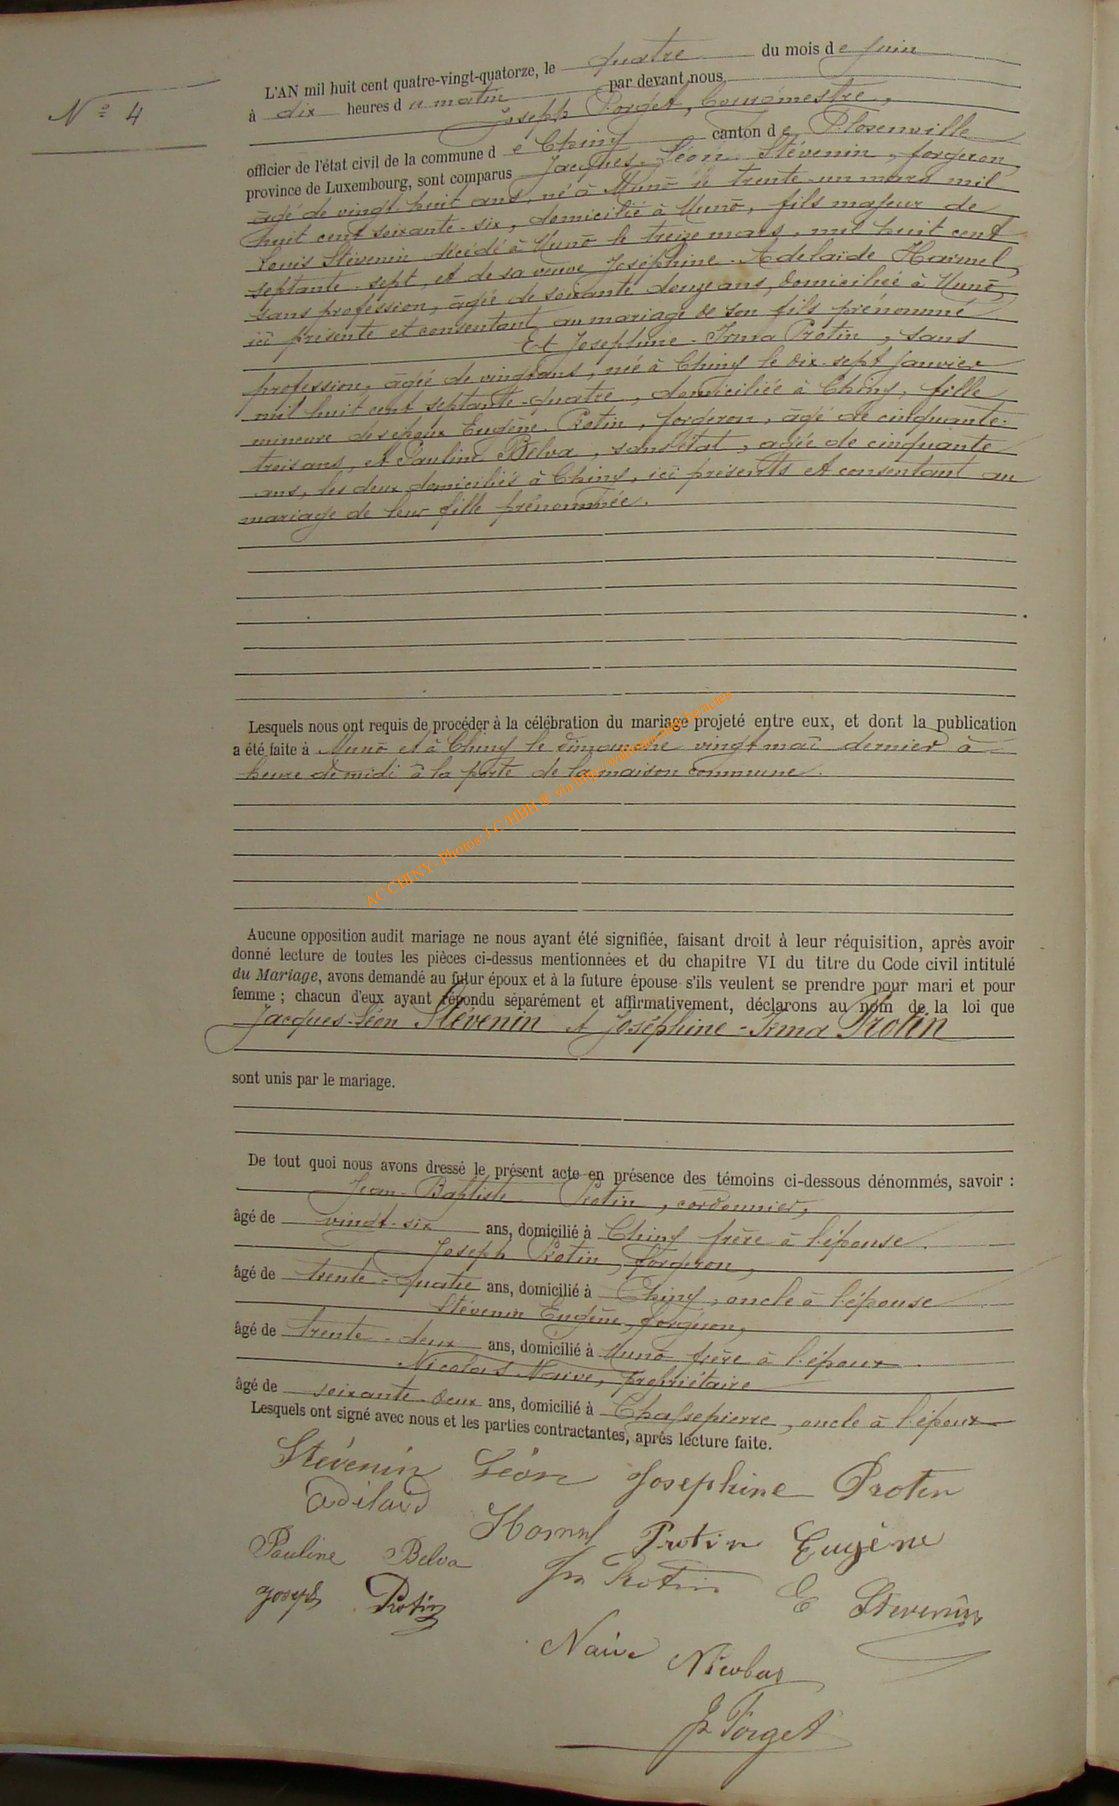 N° 4
L'AN mil huit cent quatre-vingt-quatorze, le quatre du mois de Juin
à dix heures du matin par devant nous
Joseph Forget, bourgmestre,
officier de l'état civil de la commune de Chiny canton de Florenville
province de Luxembourg, sont comparus Jacques-Léon Stévenin, forgeron
âgé de vingt-huit ans, né à Muno le trente-un mars mil
huit cent soixante-six, domicilié à Muno, fils majeur de
Louis Stévenin décédé à Muno le treize mars, mil huit cent
septante-sept, et de sa veuve Joséphine-Adelaïde Hamel,
sans profession, âgée de soixante douze ans, domiciliée à Muno,
ici présente et consentant au mariage de son fils prénommé
Et Josephine-Irma Protin, sans
profession, âgée de vingt ans, née à Chiny le dix-sept janvier
mil huit cent septante-quatre, domiciliée à Chiny, fille
mineure des époux Eugène Protin, forgeron, âgé de cinquante-
trois ans, et Pauline Belva, sans état, âgée de cinquante
ans, les deux domiciliés à Chiny, ici présents et consentant au
mariage de leur fille prénommée.
Lesquels nous ont requis de procéder à la célébration du mariage projeté entre eux, et dont la publication
a été faite à Muno et à Chiny le dimanche vingt mai dernier à
heure de midi à la porte de la maison commune.
AC CHINY - Photos J.C. HBH @
Aucune opposition audit mariage ne nous ayant été signifiée, faisant droit à leur réquisition, après avoir
donné lecture de toutes les pièces ci-dessus mentionnées et du chapitre VI du titre du Code civil intitulé
du Mariage, avons demandé au futur époux et à la future épouse s'ils veulent se prendre pour mari et pour
femme ; chacun d'eux ayant répondu séparément et affirmativement, déclarons au nom de la loi que
Jacques-Léon Stévenin et Joséphine-Irma Protin
sont unis par le mariage.
De tout quoi nous avons dressé le présent acte en présence des témoins ci-dessous dénommés, savoir :
Jean-Baptiste Protin, cordonnier,
âgé de vingt-six ans, domicilié à Chiny frère à l'épouse.
Joseph Protin, forgeron,
âgé de trente-quatre ans, domicilié à Chiny, oncle à l'épouse
Stévenin Eugène, forgeron,
âgé de trente-deux ans, domicilié à Muno frère à l'époux
Nicolas Naive, propriétaire
âgé de soixante-deux ans, domicilié à Chassepierre, oncle à l'époux
Lesquels ont signé avec nous et les parties contractantes, après lecture faite.
Stévenin Léon Josephine Protin
adelaid Hamel Protin Eugène
Pauline Belva Jn Protin E Stevenin
joseph Protin
Naive Nicolas
Js Forget